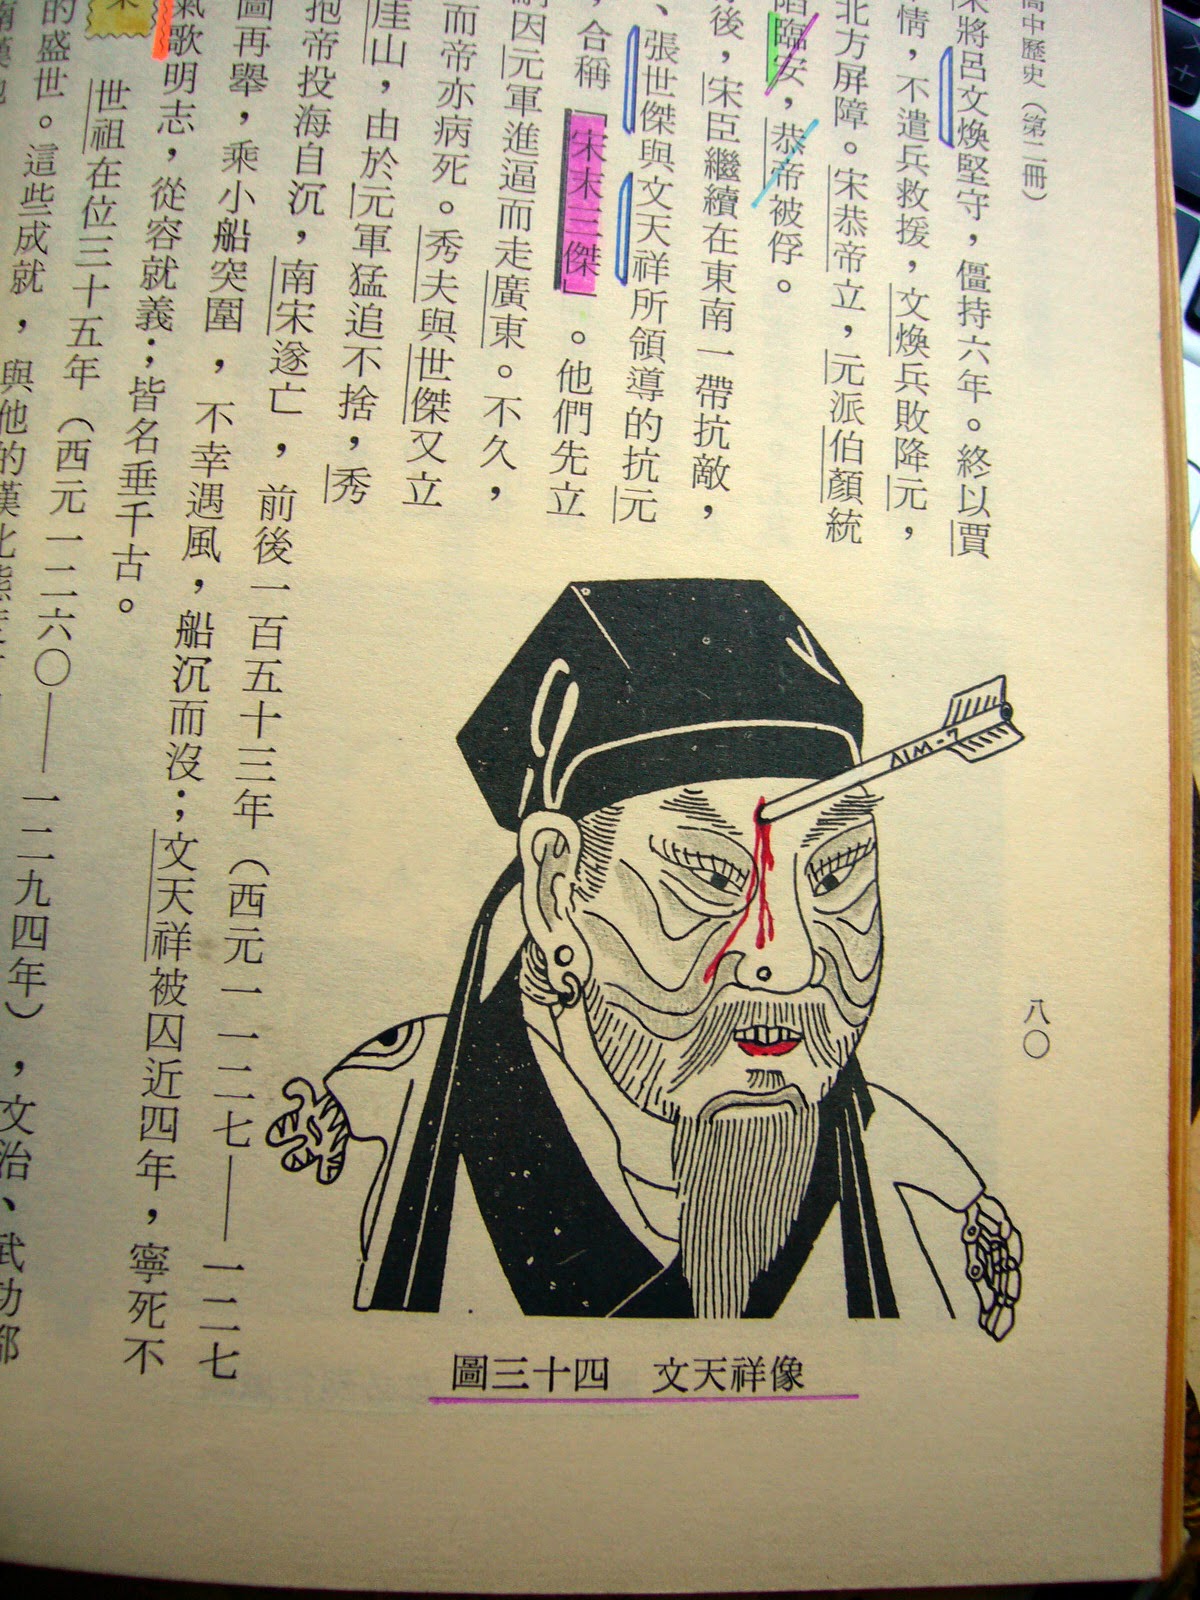 高中歷史（第二冊）
八〇
宋將呂文煥堅守，僵持六年。終以賈
情，不遣兵救援，文煥兵敗降元，
北方屏障。宋恭帝立，元派伯顏統
陷臨安，恭帝被俘。
後，宋臣繼續在東南一帶抗敵，
、張世傑與文天祥所領導的抗元
，合稱「宋末三傑」。他們先立
因元軍進逼而走廣東。不久，
而帝亦病死。秀夫與世傑又立
崖山，由於元軍猛追不捨，秀
抱帝投海自沉，南宋遂亡，前後一百五十三年（西元一一二七——一二七
圖再舉，乘小船突圍，不幸遇風，船沉而沒；文天祥被囚近四年，寧死不
氣歌明志，從容就義；皆名垂千古。
世祖在位三十五年（西元一二六〇——一二九四年），文治、武功都
的盛世。這些成就，與他的漢化
AIM-7
圖三十四　文天祥像